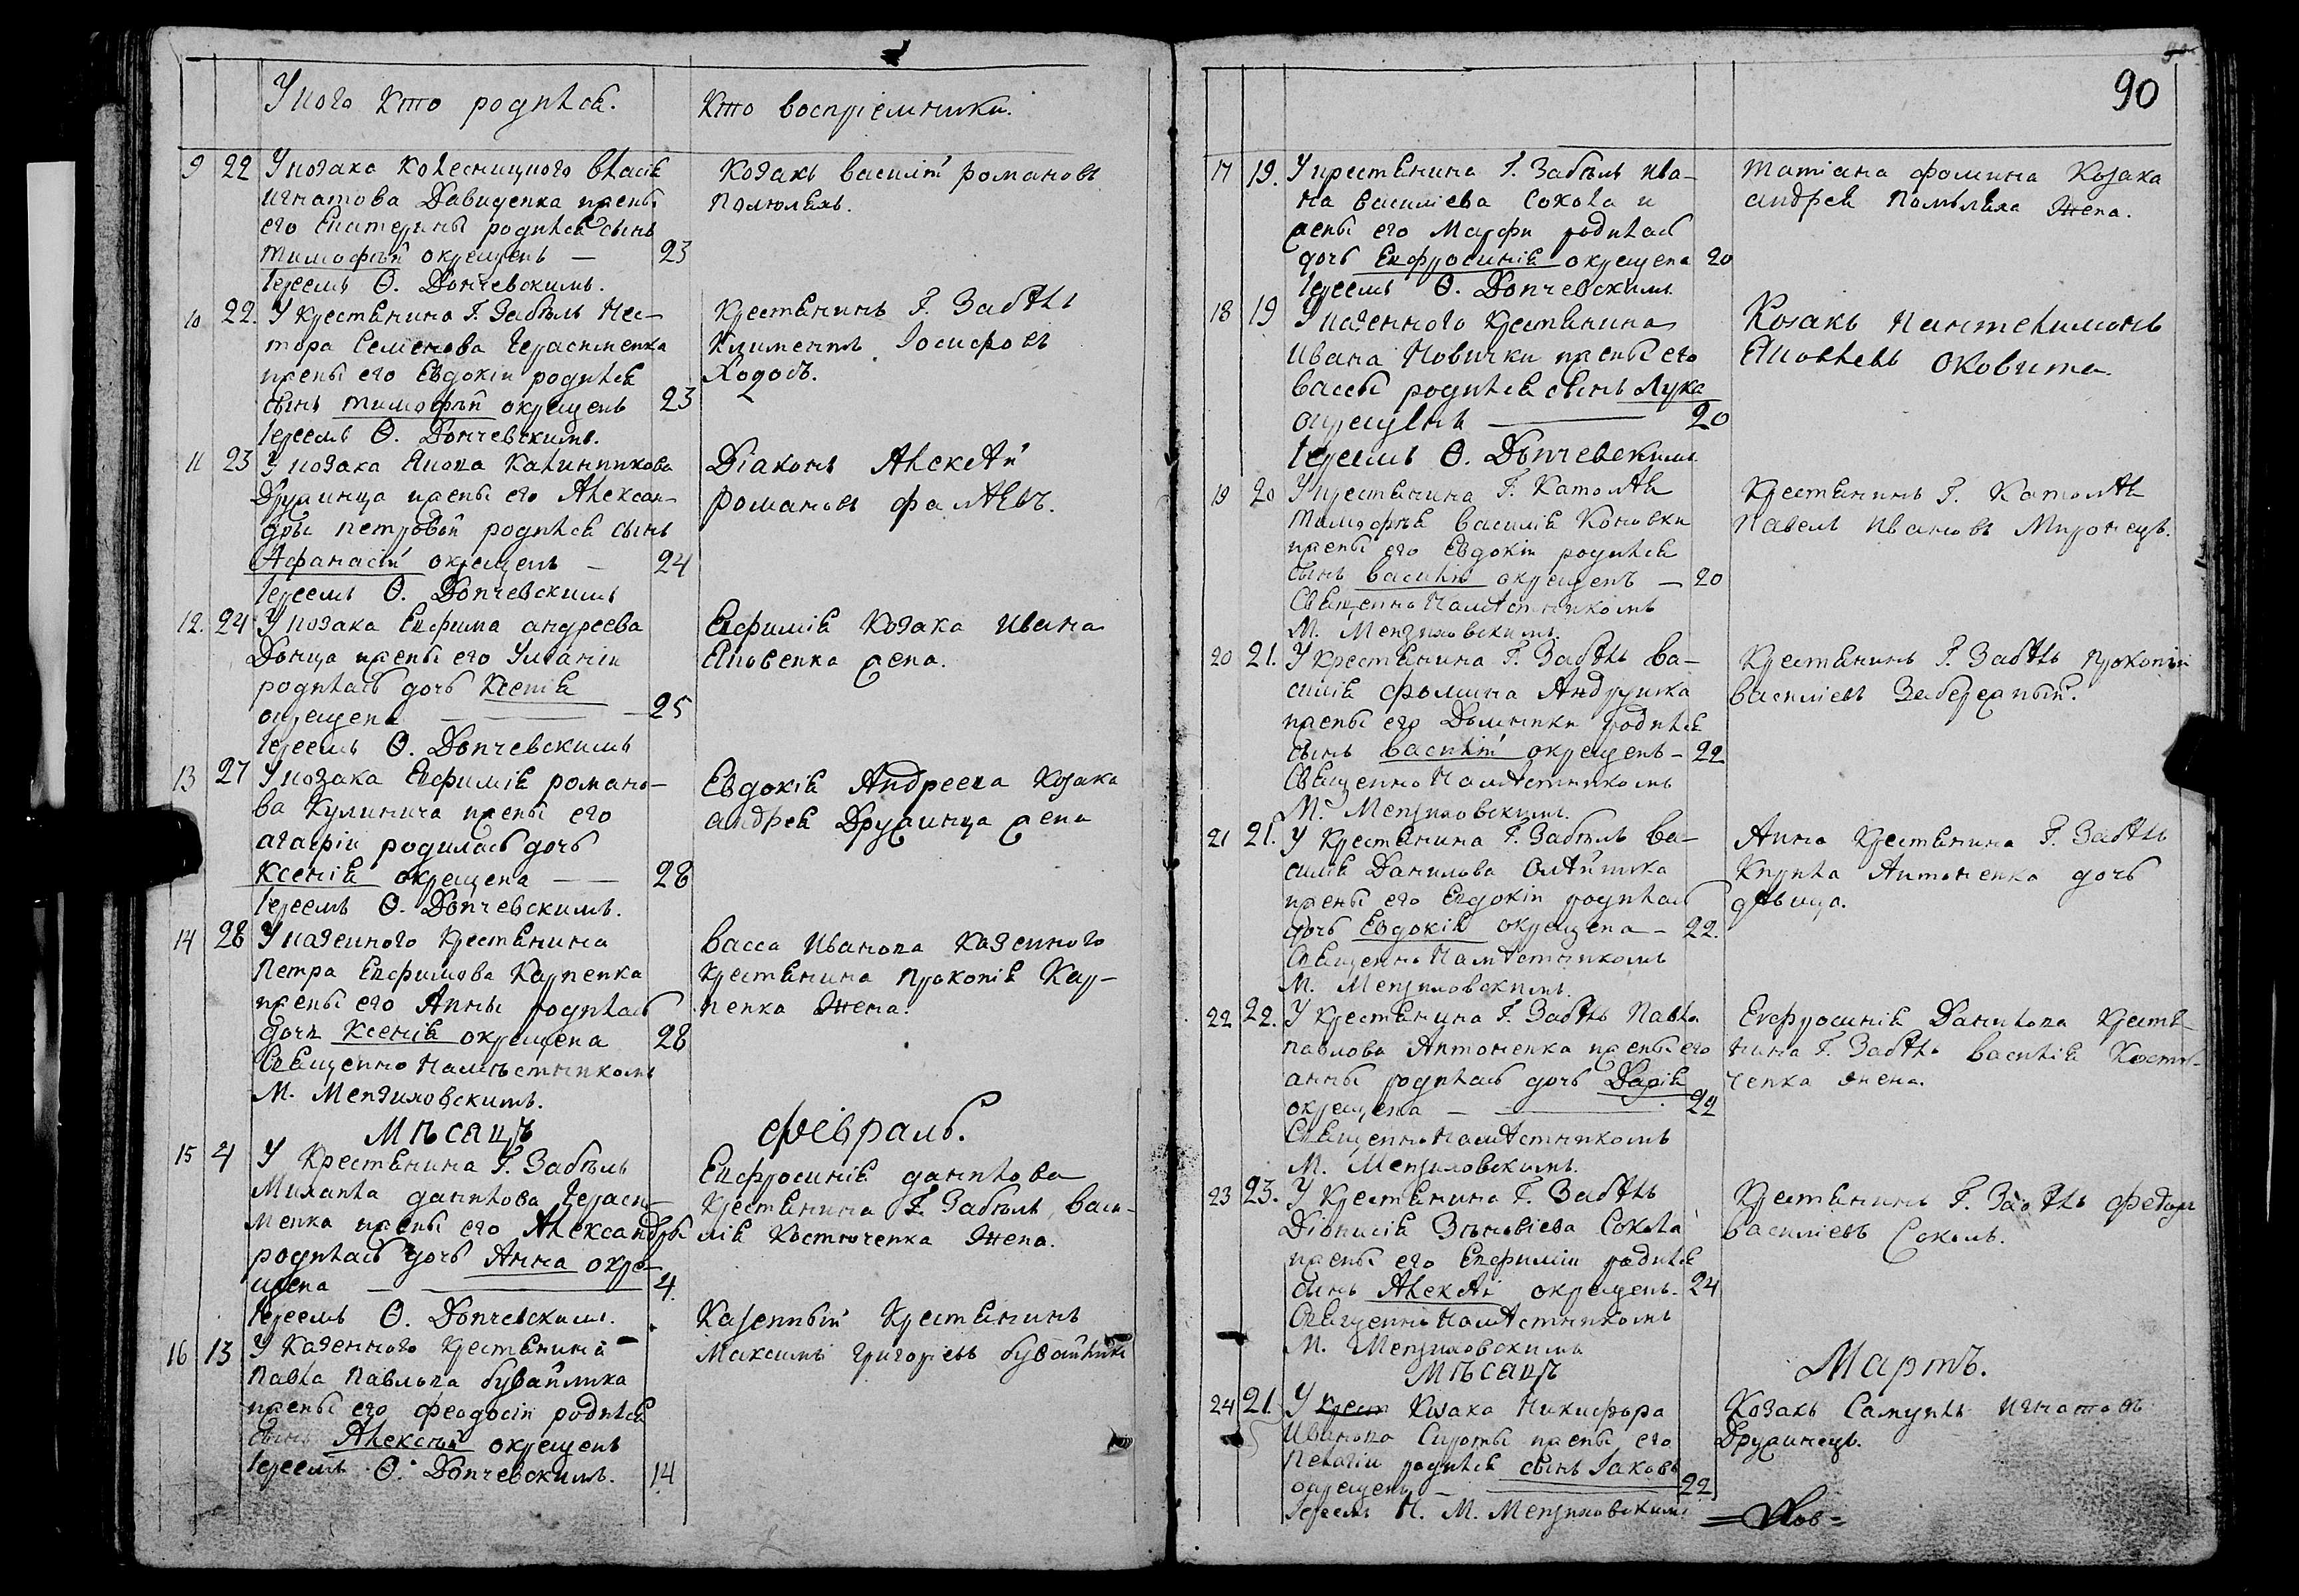 У кого кто родился.
Кто восприемники.
9 22 У козака Колесницкого Власія
Игнатова Давиденка жены
его Екатерины родился сынъ
Тимофѣй окрещенъ — 23
Іереемъ Ѳ. Дончевскимъ.
Козакъ Василій Романовъ
10 22. У Крестянина Г. Забѣлъ Нес-
тора Семенова Герасименка
жены его Евдокіи родился
сынъ Тимофѣй окрещенъ 23
Іереемъ Ѳ. Дончевскимъ.
Крестянинъ Г. Забѣлъ
Климентъ Іосифовъ
Ходосъ.
11 23 У козака Якова Калинникова
Дружинца жены его Алексан-
дры Петровой родился сынъ
Афанасій окрещенъ — 24
Іереемъ Ѳ. Дончевскимъ
Діаконъ Алексѣй
Романовъ Фалѣевъ.
12. 24 У козака Евфима Андреева
Донца жены его Уліаніи
родилась дочь Ксенія
окрещена — 25
Іереемъ Ѳ. Дончевскимъ
Евфимія Козака Ивана
Яковенка жена.
13 27 У козака Евфимія Романо-
ва Кулинича жены его
Агафіи родилась дочь
Ксенія окрещена — 28
Іереемъ Ѳ. Дончевскимъ.
Евдокія Андреева Козака
Андрея Дружинца жена
14 28 У казенного Крестянина
Петра Евфимова Карпенка
жены его Анны родилась
дочь Ксенія окрещена 28
Священно Намѣстникомъ
М. Мензиловскимъ.
Васса Иванова Казенного
Крестянина Прокопія Кар-
пенка Жена.
Мѣсяцъ Февраль.
15 4 У Крестянина Г. Забѣлъ
Михаила Данилова Гераси-
менка жены его Александры
родилась дочь Анна окре-
щена — 4.
Іереемъ Ѳ. Дончевскимъ.
Евфросинія Данилова
Крестянина Г. Забѣлъ Васи-
лія Костюченка Жена.
16 13 У Казенного Крестянина
Павла Павлова Бувайлика
жены его Феодосіи родился
сынъ Алексѣй окрещенъ
Іереемъ Ѳ. Дончевскимъ. 14
Казенный Крестянинъ
Максимъ Григоріевъ Бувайликъ
90
17 19. У крестянина Г. Забѣлъ Ива-
на Василіева Сокола и
жены его Марфы родилась
дочь Евфросинія окрещена 20
Іереемъ Ѳ. Дончевскимъ.
Татіана Фомина Козака
Андрея Жена.
18 19 У казенного Крестянина
Ивана Новички жены его
Вассы родился сынъ Лука
окрещенъ — 20
Іереемъ Ѳ. Дончевскимъ
Козакъ Пантелимонъ
Яковлевъ Оковита.
19 20 У крестянина Г. Католѣя
Тимофѣя Василія Коновки
жены его Евдокіи родился
сынъ Василій окрещенъ — 20
Священно Намѣстникомъ
М. Мензиловскимъ.
Крестянинъ Г. Католѣя
Павелъ Ивановъ Миронецъ.
20 21. У Крестянина Г. Забѣлъ Ва-
силія Фомина Андрушка
жены его Домники родился
сынъ Василій окрещенъ — 22
Священно Намѣстникомъ
М. Мензиловскимъ.
Крестянинъ Г. Забѣлъ Прокопій
Василіевъ Забережный.
21 21. У Крестянина Г. Забѣлъ Ва-
силія Данилова Олѣйника
жены его Евдокіи родилась
дочь Евдокія окрещена — 22.
Священно Намѣстникомъ
М. Мензиловскимъ.
Анна Крестянина Г. Забѣлъ
Кирила Антоненка дочь
дѣвица.
22 22. У Крестянина Г. Забѣлъ Павла
Павлова Антоненка жены его
Анны родилась дочь Дарія
окрещена — 22
Священно Намѣстникомъ
М. Мензиловскимъ.
Евфросинія Данилова Крестя-
нина Г. Забѣлъ Василія Костю-
ченка жена.
23 23. У Крестянина Г. Забѣлъ
Діонисія Зѣновіева Сокола
жены его Евфиміи родился
сынъ Алексѣй окрещенъ — 24
Священно Намѣстникомъ
М. Мензиловскимъ
Крестянинъ Г. Забѣлъ Федоръ
Василіевъ Соколъ.
Мѣсяцъ Мартъ.
24 21. У Крест Козака Никифора
Иванова Сироты жены его
Пелагіи родился сынъ Іаковъ
окрещенъ — 22
Іереемъ Н. М. Мензиловскимъ
Козакъ Самуилъ Игнатовъ
Дружинецъ.